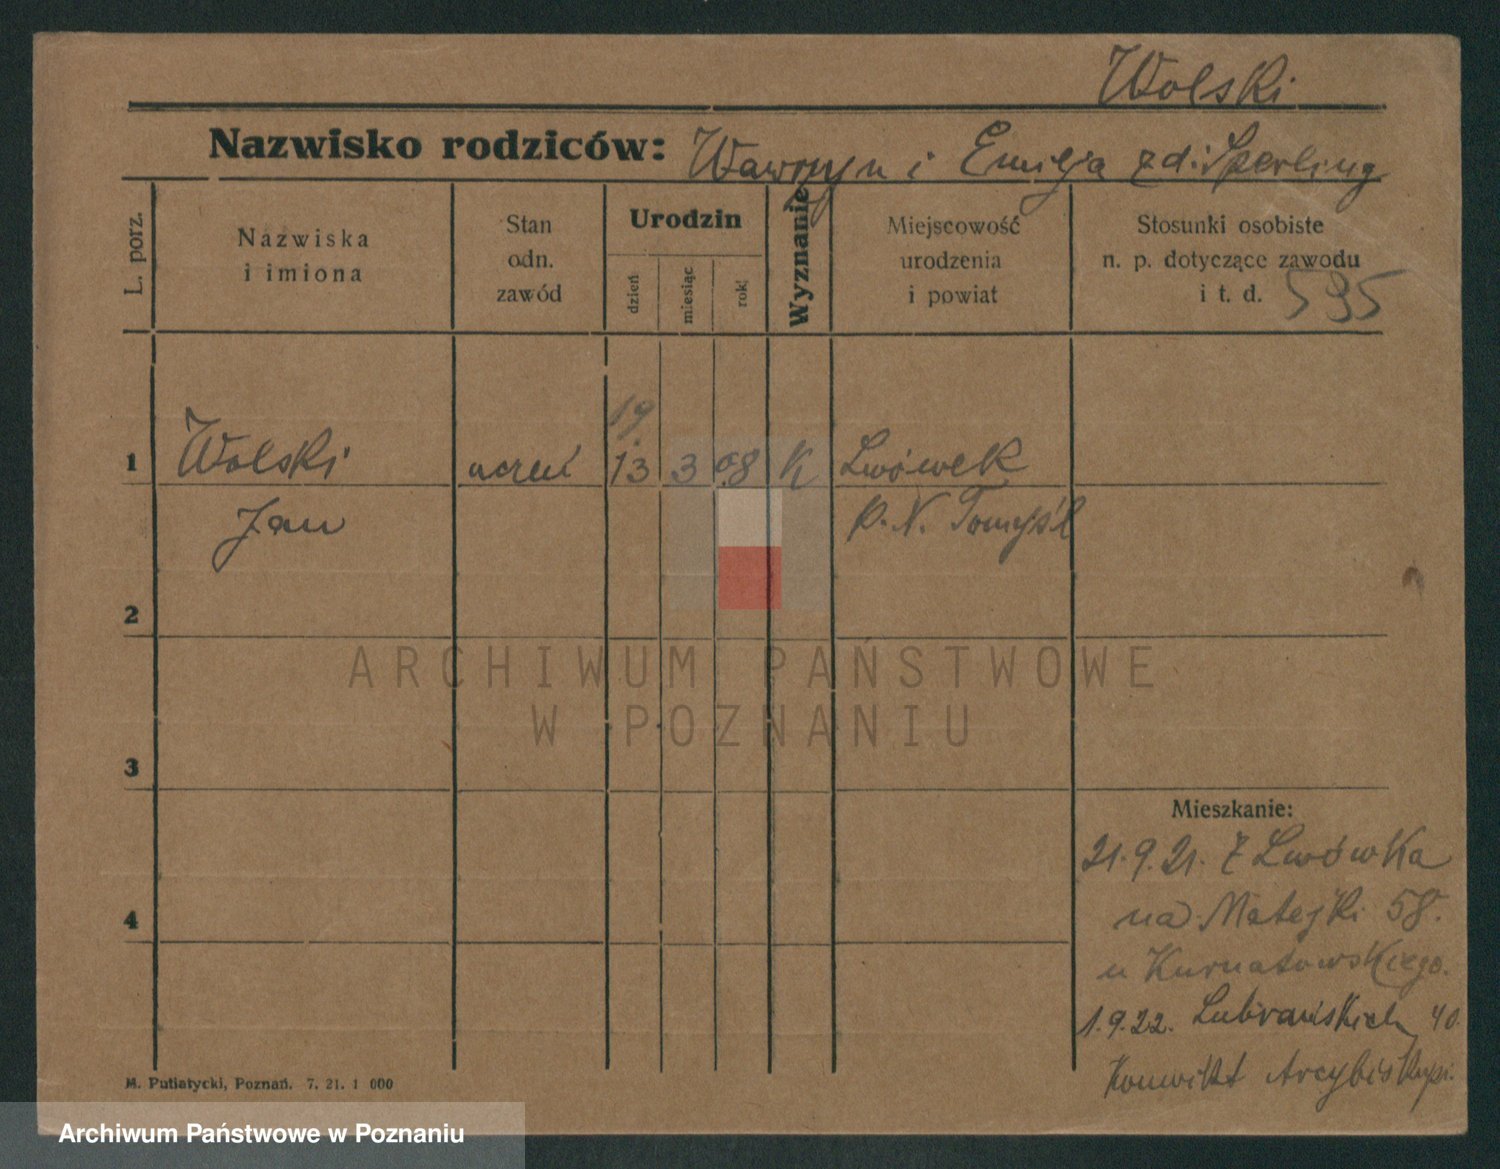 Wolski
Nazwisko rodziców: Wawrzyn i Emilja z d. Sperling
L. porz.
Nazwiska
i imiona
Stan
odn.
zawód
Urodzin
dzień
miesiąc
rok
Wyznanie
Miejscowość
urodzenia
i powiat
Stosunki osobiste
n. p. dotyczące zawodu
i t. d. 595
19.
1 Wolski uczeń 13 3 08 K Lwówek
Jan p. N. Tomyśl
2
ARCHIWUM PAŃSTWOWE
W POZNANIU
3
Mieszkanie:
21.9.21. Z Lwówka
4 na Matejki 58.
u Kurnatowskiego.
1.9.22. Lubrańskich 40.
Konwikt Arcybiskupi.
M. Putiatycki, Poznań. 7. 21. 1 000
Archiwum Państwowe w Poznaniu